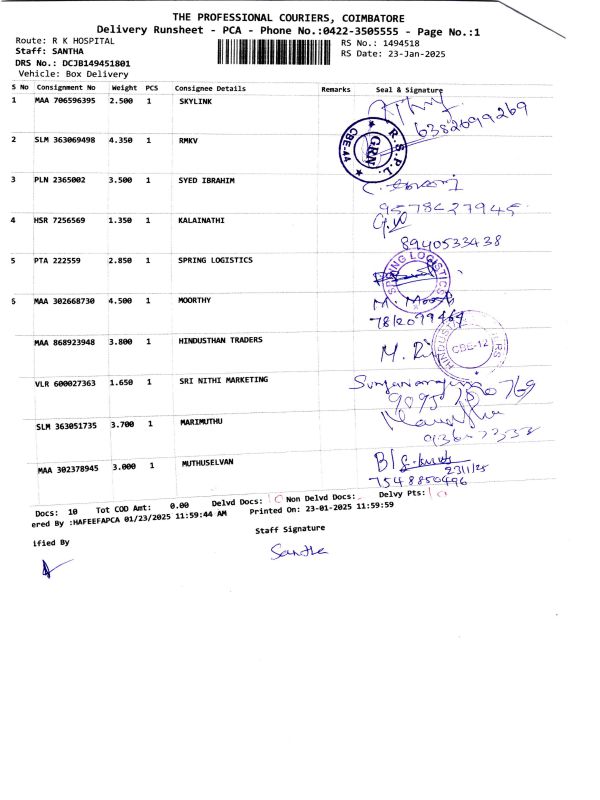 THE PROFESSIONAL COURIERS, COIMBATORE
Delivery Runsheet - PCA - Phone No.:0422-3505555 - Page No.:1
Route: R K HOSPITAL
RS No.: 1494518
Staff: SANTHA
RS Date: 23-Jan-2025
DRS No.: DCJB149451801
Vehicle: Box Delivery
S No Consignment No Weight PCS Consignee Details Remarks Seal & Signature
1 MAA 706596395 2.500 1 SKYLINK
6382699269
2 SLM 363069498 4.350 1 RMKV
R.S.P.L. GRN CBE-44
3 PLN 2365002 3.500 1 SYED IBRAHIM
9578427945
4 HSR 7256569 1.350 1 KALAINATHI
8940533438
5 PTA 222559 2.850 1 SPRING LOGISTICS
SPRING LOGISTICS
6 MAA 302668730 4.500 1 MOORTHY
M. Moorthy
MAA 868923948 3.800 1 HINDUSTHAN TRADERS
M. CBE-12
VLR 600027363 1.650 1 SRI NITHI MARKETING
SLM 363051735 3.700 1 MARIMUTHU
MAA 302378945 3.000 1 MUTHUSELVAN
23/1/25
7548850496
Docs: 10 Tot COD Amt: 0.00 Delvd Docs: 10 Non Delvd Docs: Delvy Pts: 10
ered By :HAFEEFAPCA 01/23/2025 11:59:44 AM Printed On: 23-01-2025 11:59:59
Staff Signature
ified By
Santha